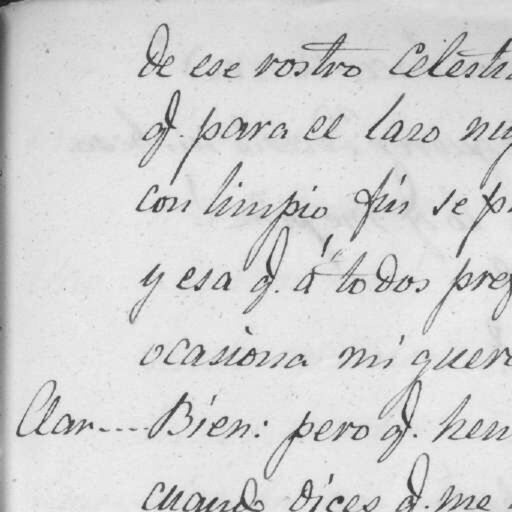 de ese rostro Celesti
q.^ para el lazo nup
con limpio fin se p
y esa q.^ á todos pref
ocasiona mi quere
Clar.... Bien: pero q.^ hem
cuando dices q.^ me